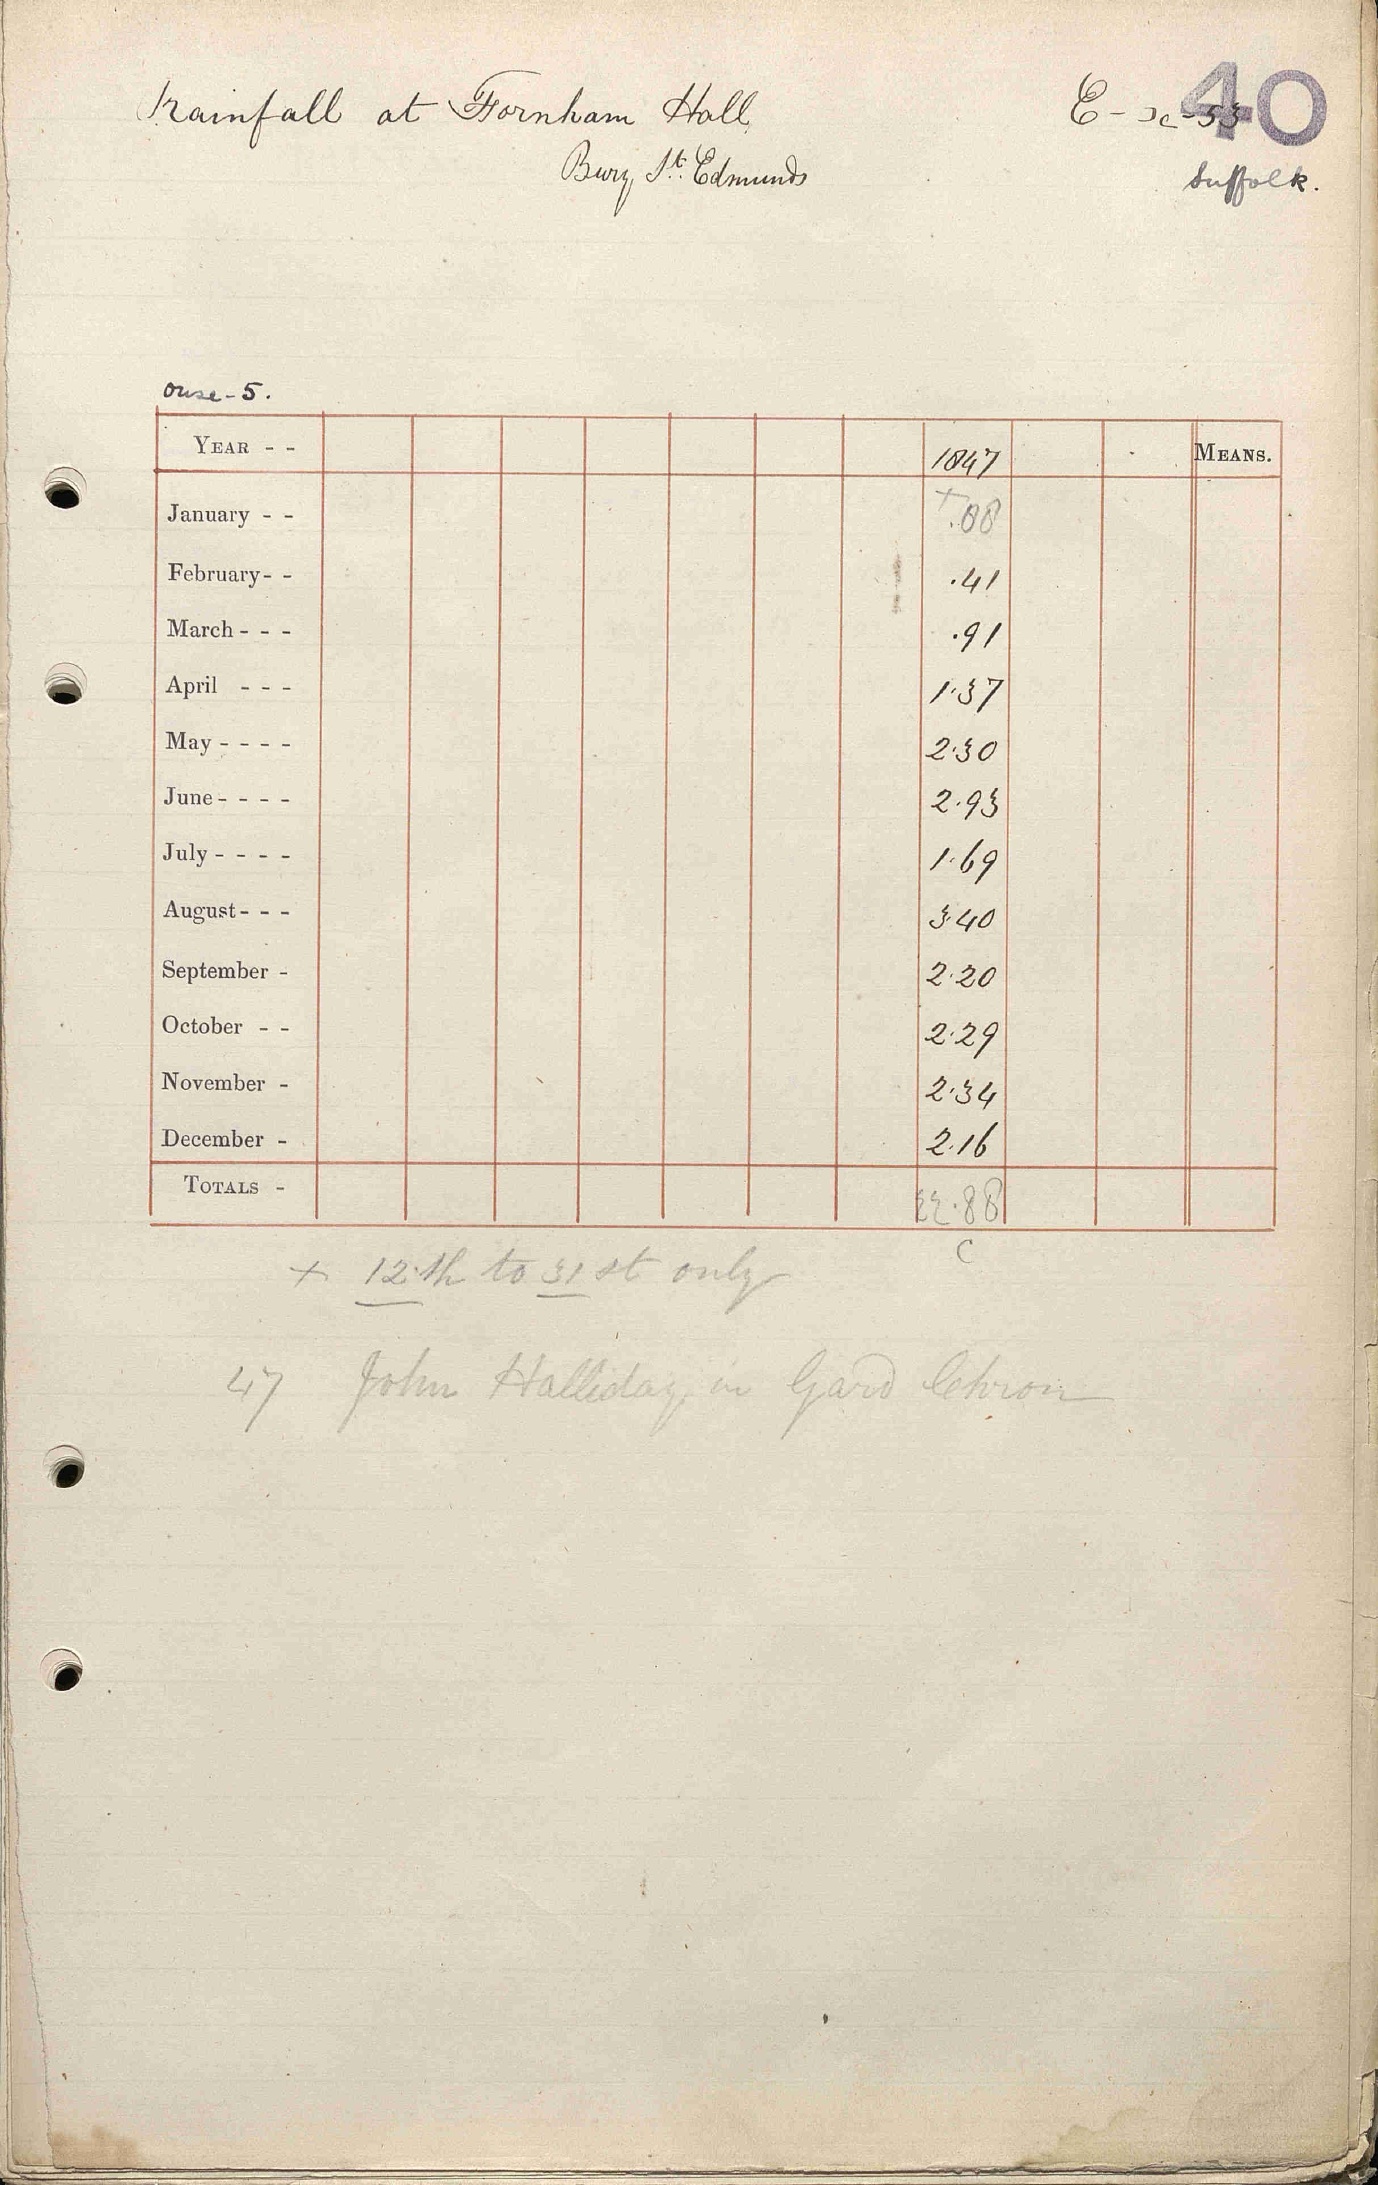 40
Rainfall at Fornham Hall E - x - 53
Bury St. Edmunds Suffolk.
Ouse - 5.
YEAR - - 1847 MEANS.
January - - + .88
February - - .41
March - - - .91
April - - - 1.37
May - - - - 2.30
June - - - - 2.93
July - - - - 1.69
August - - - 3.40
September - 2.20
October - - 2.29
November - 2.34
December - 2.16
TOTALS - 22.88
C
+ 12th to 31st only
47 John Halliday in Gard Chron